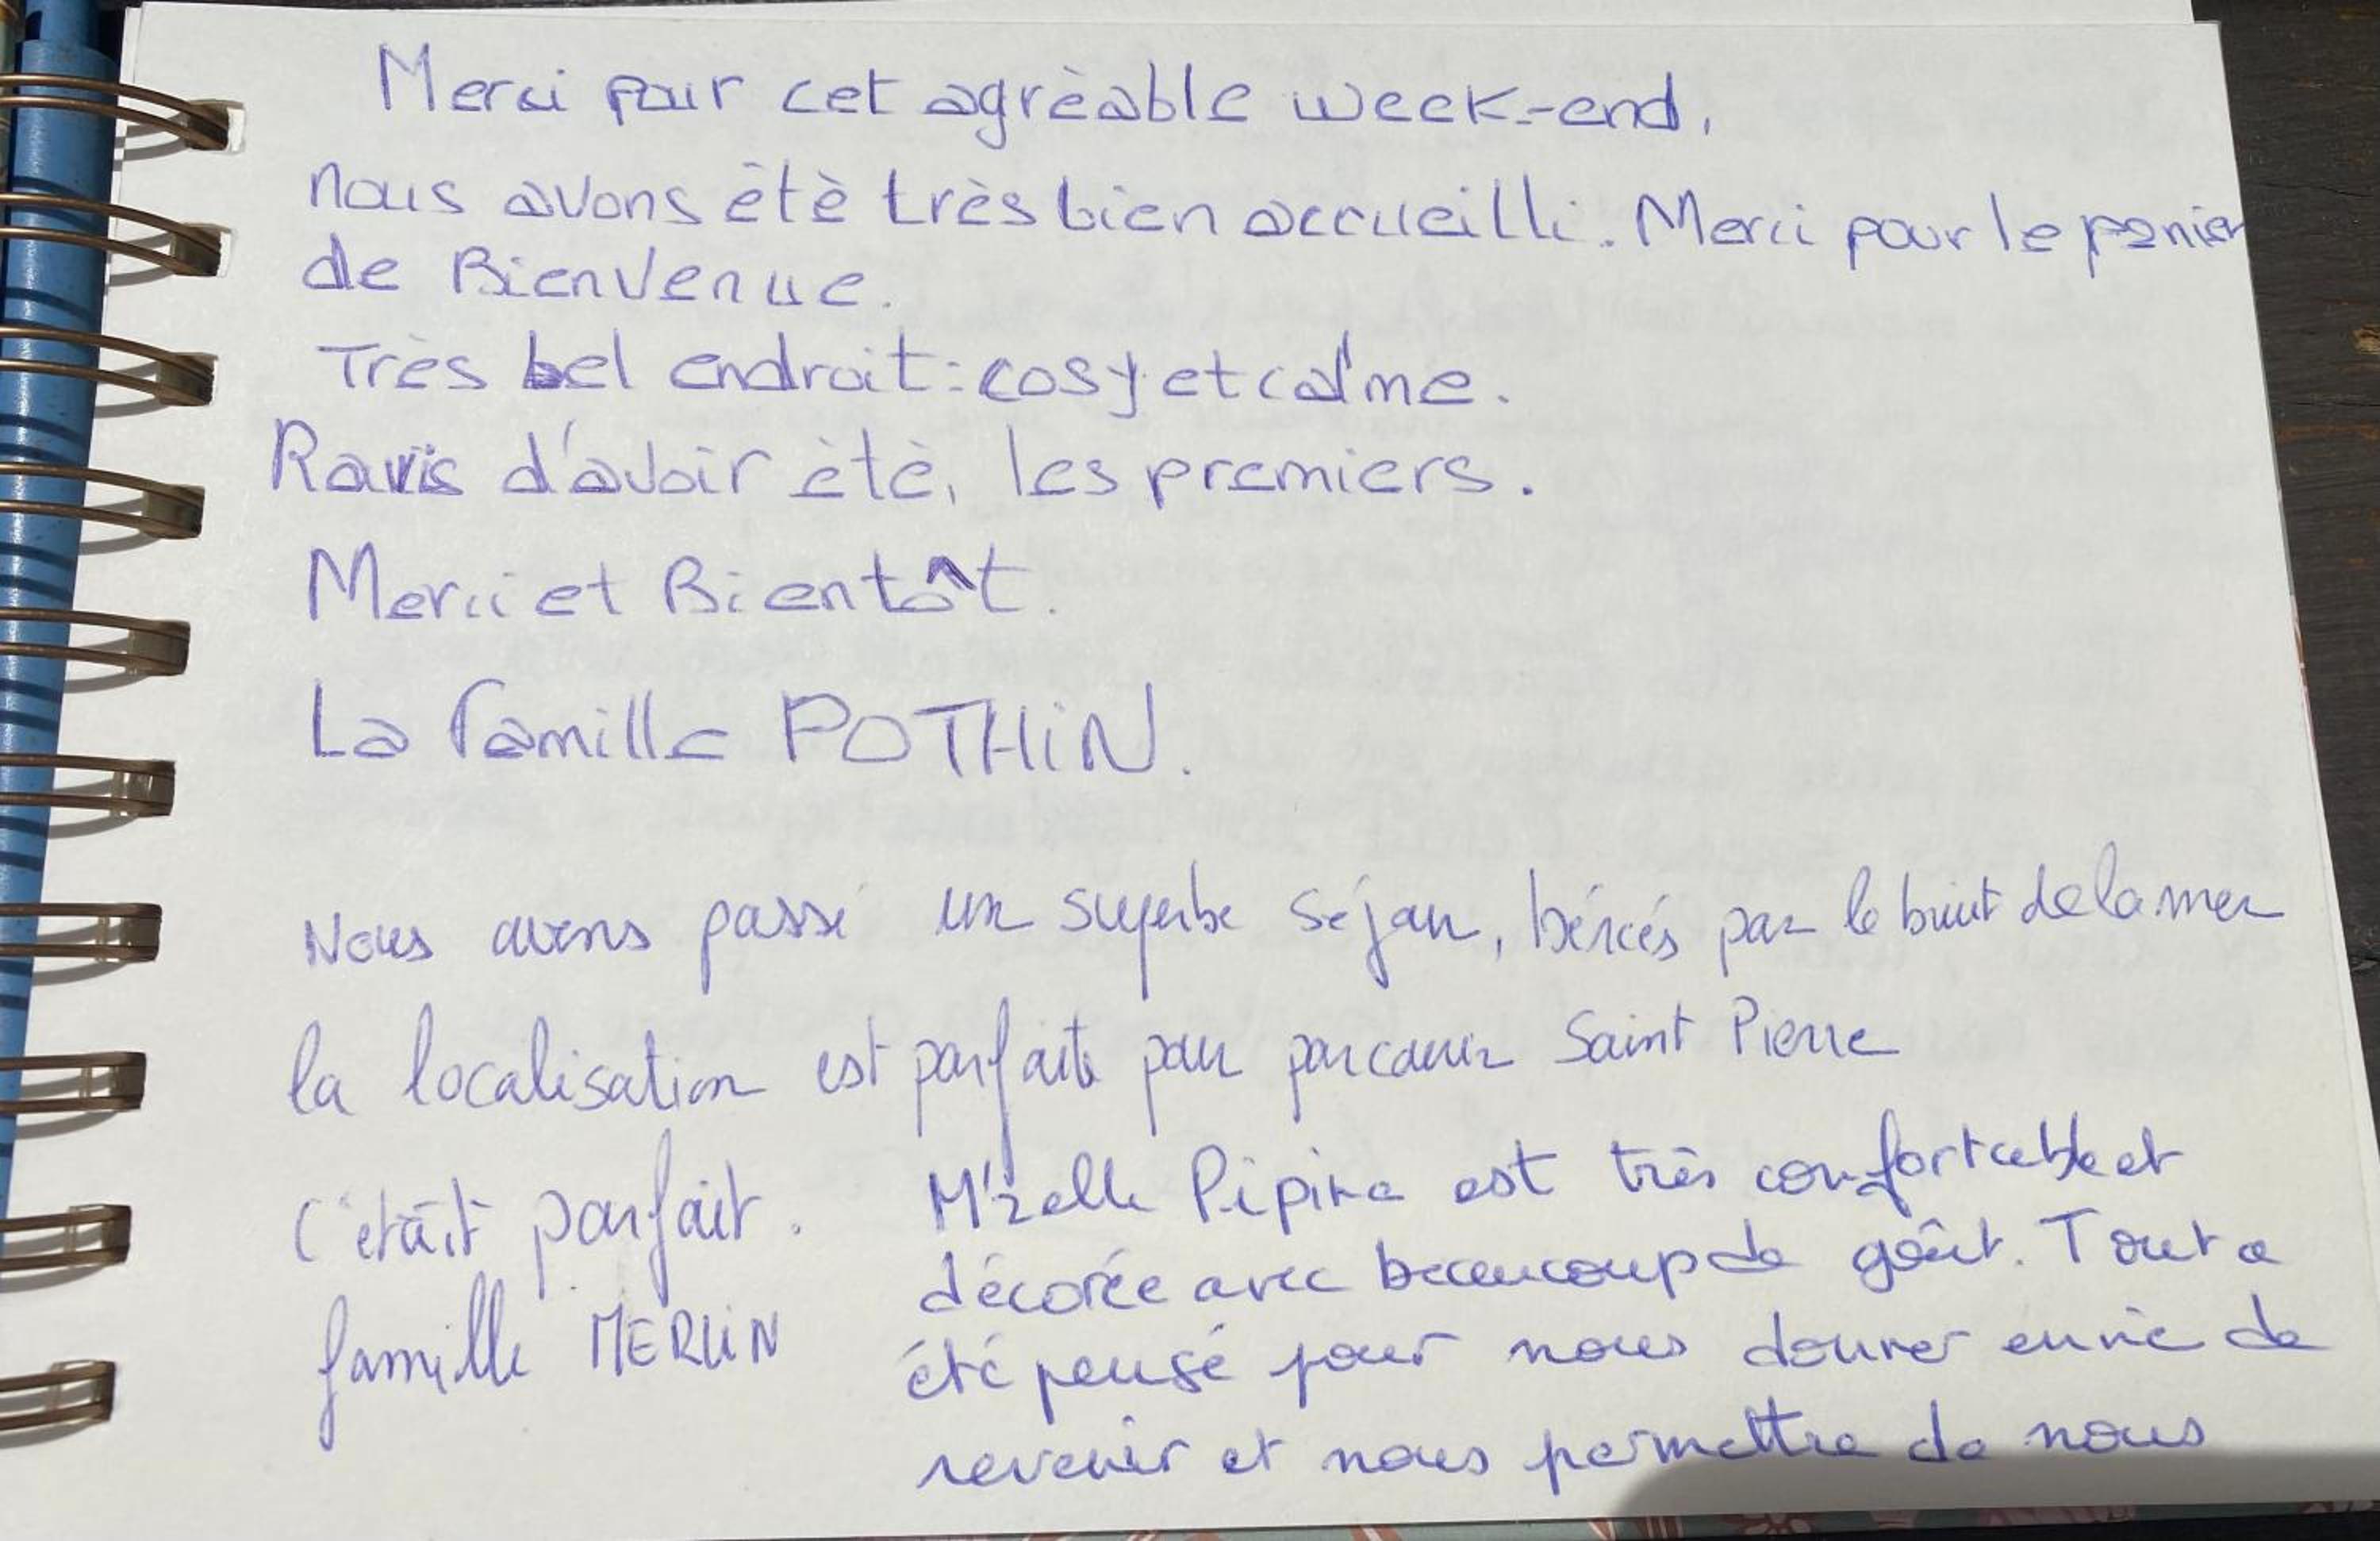 Merci pour cet agrèable week-end,
nous avons étè très bien accueilli. Merci pour le panier
de Bienvenue.
Très bel endroit : cosy et calme.
Ravis d'avoir étè, les premiers.
Merci et Bientôt.
La famille POTHiN.
Nous avons passé un superbe séjour, bércés par le bruit de la mer
la localisation est parfaite pour parcourir Saint Pierre
C'était parfait.
famille MERLIN
M'zelle Pipine est très confortable et
décorée avec beaucoup de goût. Tout a
été pensé pour nous donner envie de
revenir et nous permettre de nous